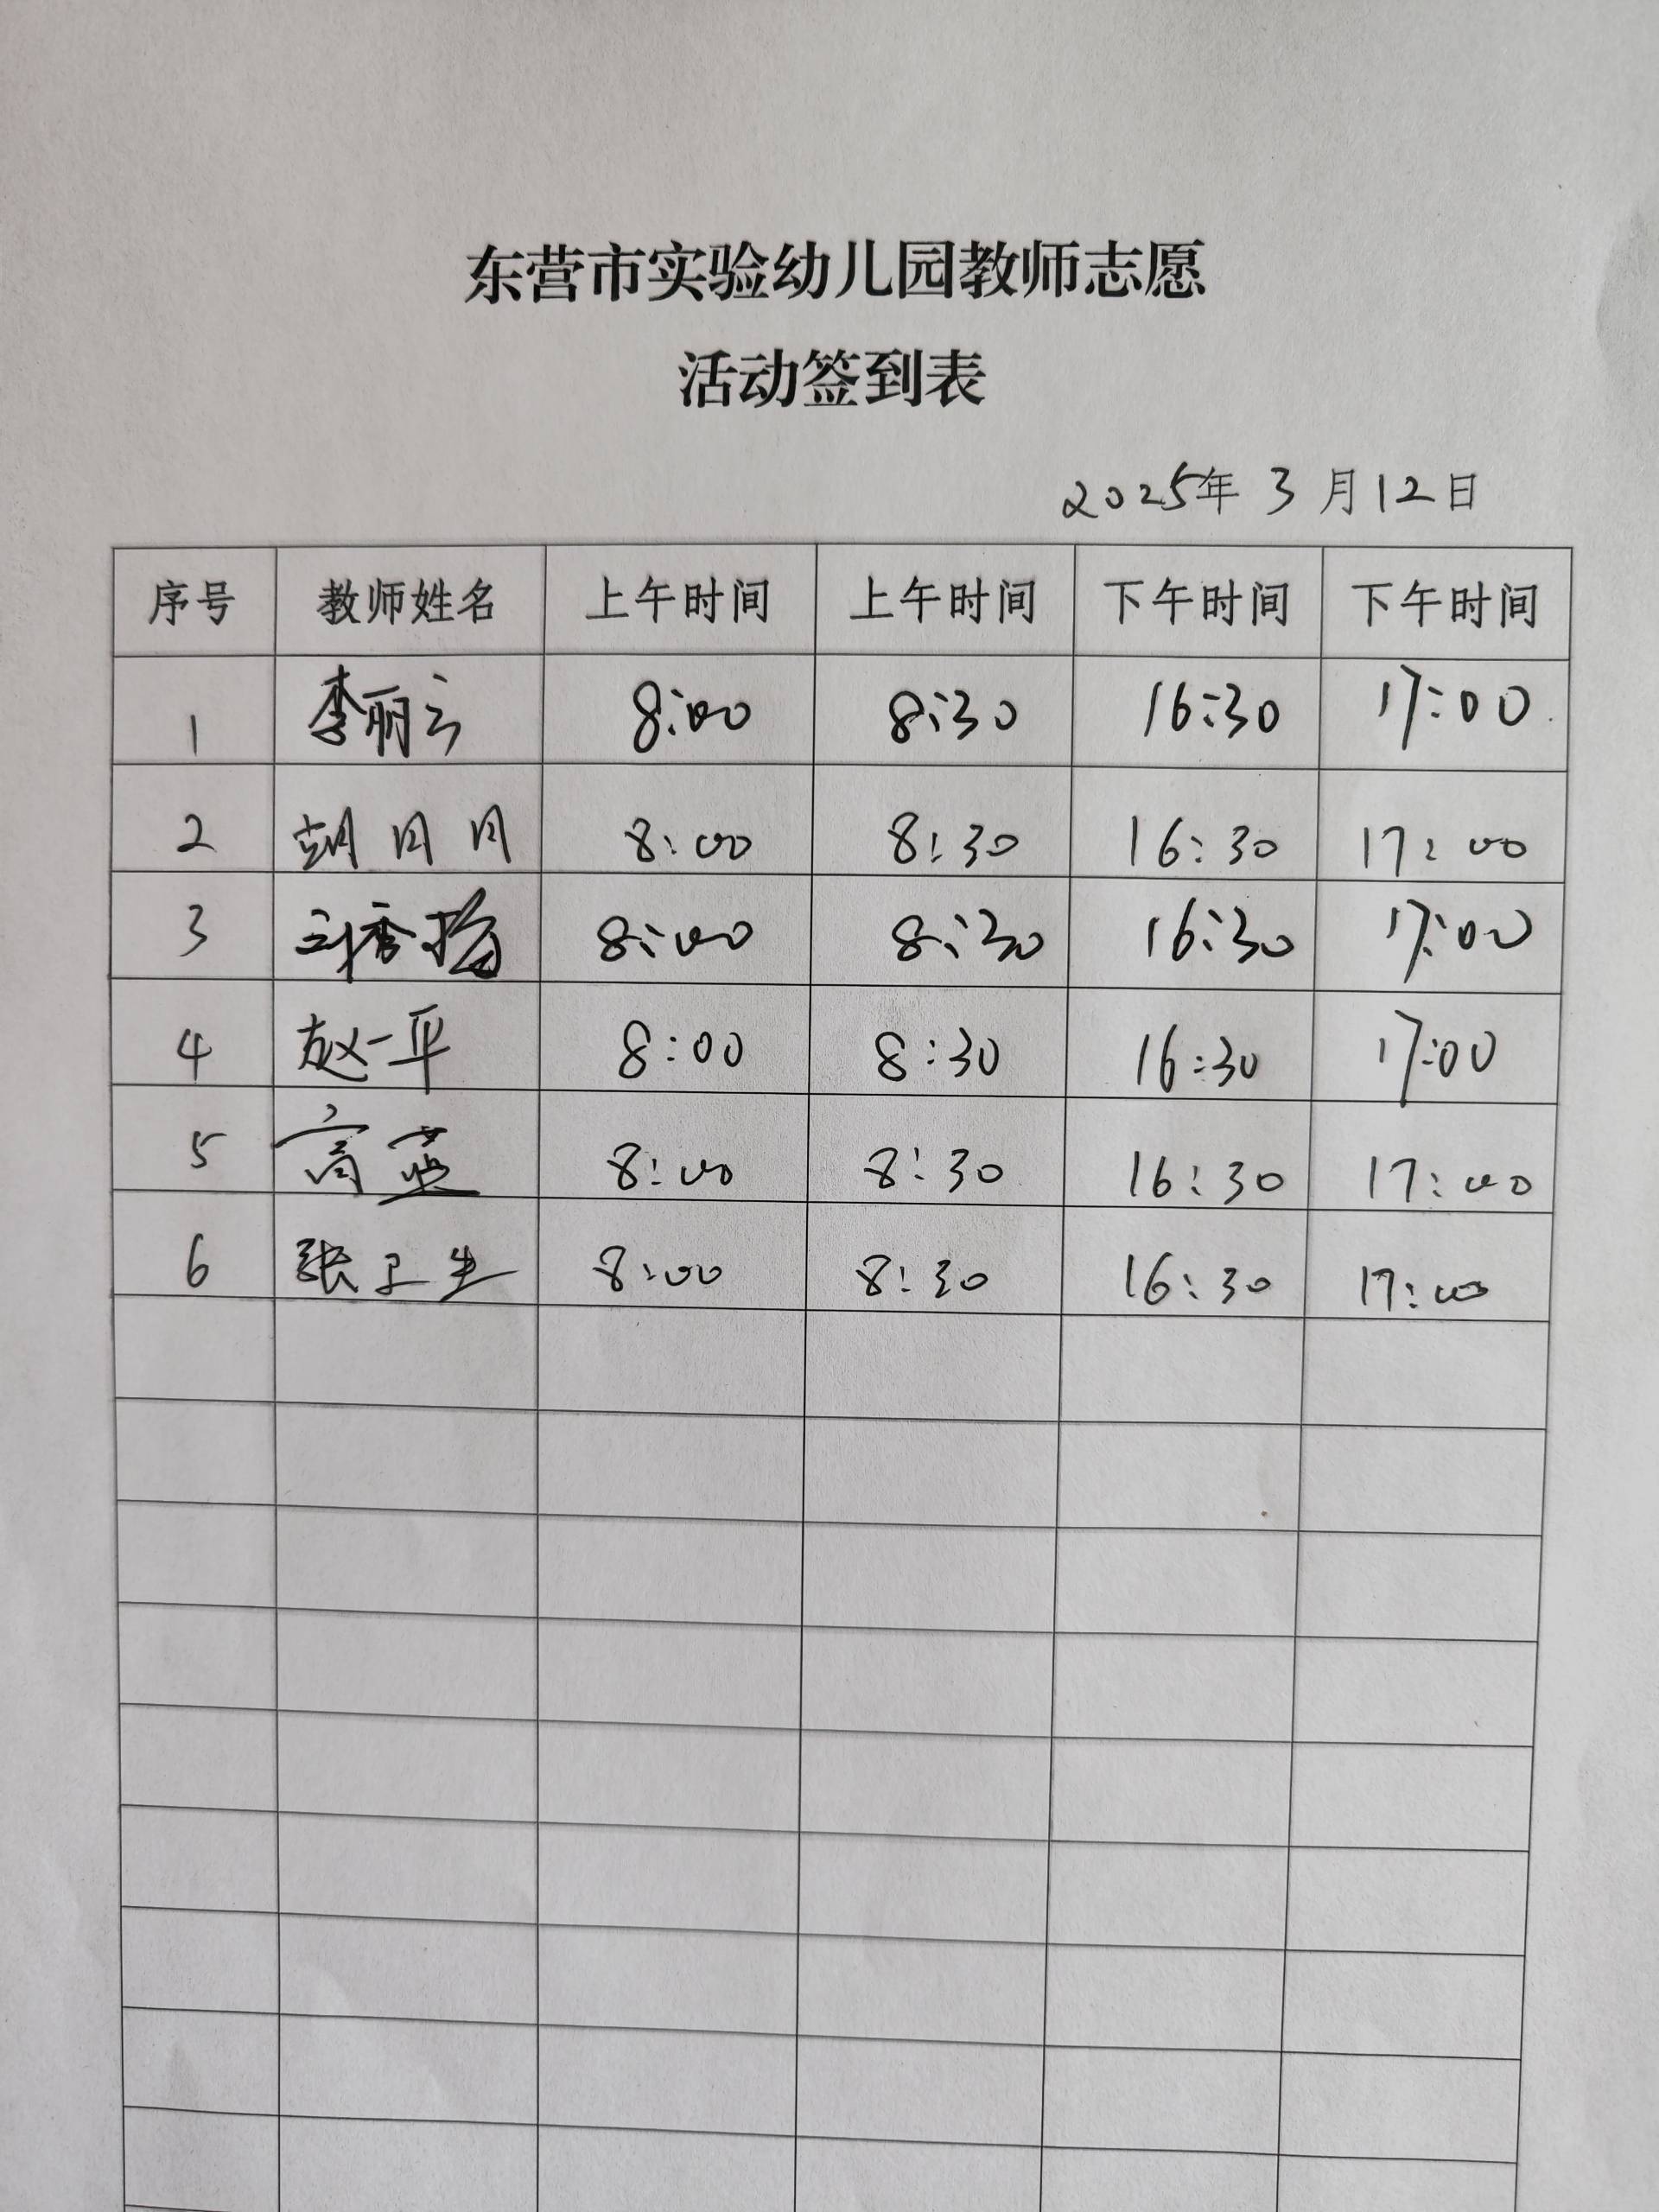 东营市实验幼儿园教师志愿
活动签到表
2025年 3 月12日
序号 教师姓名 上午时间 上午时间 下午时间 下午时间
1 李丽云 8:00 8:30 16:30 17:00
2 胡月月 8:00 8:30 16:30 17:00
3 8:00 8:30 16:30 17:00
4 赵一平 8:00 8:30 16:30 17:00
5 高蓝 8:00 8:30 16:30 17:00
6 张卫生 8:00 8:30 16:30 17:00